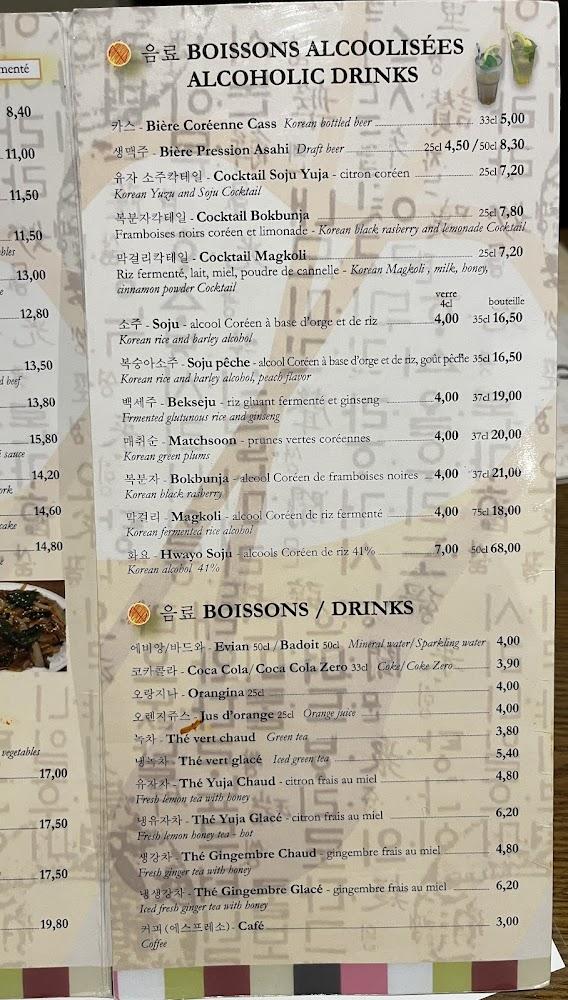 menté
8,40
11,00
11,50
11,50
bles
13,00
e
12,80
13,50
d beef
13,80
15,80
i sauce
14,20
ork
14,60
cake
14,80
e
vegetables
17,00
17,50
17,50
19,80
음료 BOISSONS ALCOOLISÉES
ALCOHOLIC DRINKS
카스 - Bière Coréenne Cass Korean bottled beer 33cl 5,00
생맥주 - Bière Pression Asahi Draft beer 25cl 4,50 / 50cl 8,30
유자 소주칵테일 - Cocktail Soju Yuja - citron coréen 25cl 7,20
Korean Yuzu and Soju Cocktail
복분자칵테일 - Cocktail Bokbunja 25cl 7,80
Framboises noirs coréen et limonade - Korean black rasberry and lemonade Cocktail
막걸리칵테일 - Cocktail Magkoli 25cl 7,20
Riz fermenté, lait, miel, poudre de cannelle - Korean Magkoli , milk, honey,
cinnamon powder Cocktail
verre bouteille
4cl
소주 - Soju - alcool Coréen à base d'orge et de riz 4,00 35cl 16,50
Korean rice and barley alcohol
복숭아소주 - Soju pêche - alcool Coréen à base d'orge et de riz, goût pêche 35cl 16,50
Korean rice and barley alcohol, peach flavor
백세주 - Bekseju - riz gluant fermenté et ginseng 4,00 37cl 19,00
Frmented glutunous rice and ginseng
매취순 - Matchsoon - prunes vertes coréennes 4,00 37cl 20,00
Korean green plums
복분자 - Bokbunja - alcool Coréen de framboises noires 4,00 37cl 21,00
Korean black rasberry
막걸리 - Magkoli - alcool Coréen de riz fermenté 4,00 75cl 18,00
Korean fermented rice alcohol
화요 - Hwayo Soju - alcools Coréen de riz 41% 7,00 50cl 68,00
Korean alcohol 41%
음료 BOISSONS / DRINKS
에비앙/바드와 - Evian 50cl / Badoit 50cl Mineral water/ Sparkling water 4,00
코카콜라 - Coca Cola/ Coca Cola Zero 33cl Coke/ Coke Zero 3,90
오랑지나 - Orangina 25cl 4,00
오렌지쥬스 - Jus d'orange 25cl Orange juice 4,00
녹차 - Thé vert chaud Green tea 3,80
냉녹차 - Thé vert glacé Iced green tea 5,40
유자차 - Thé Yuja Chaud - citron frais au miel 4,80
Fresh lemon tea with honey
냉유자차 - Thé Yuja Glacé - citron frais au miel 6,20
Fresh lemon honey tea - hot
생강차 - Thé Gingembre Chaud - gingembre frais au miel 4,80
Fresh ginger tea with honey
냉생강차 - Thé Gingembre Glacé - gingembre frais au miel 6,20
Iced fresh ginger tea with honey
커피(에스프레소) - Café 3,00
Coffee